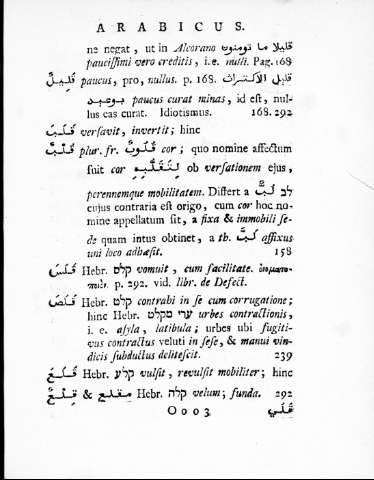 ARABICUS.
ne negat, ut in Alcorano قليلا ما تومنون
paucissimi vero creditis, i.e. nulli. Pag. 168
قليل paucus, pro, nullus. p. 168. قليل الاكتراث
بوعيد paucus curat minas, id est, nul-
lus eas curat. Idiotismus. 168. 292
قلب versavit, invertit; hinc
قلب plur. fr. قلوب cor; quo nomine affectum
suit cor لتقلبه ob versationem ejus,
perennemque mobilitatem. Differt a لب
cujus contraria est origo, cum cor hoc no-
mine appellatum sit, a fixa & immobili se-
de quam intus obtinet, a th. لب affixus
uni loco adhæsit. 158
قلس Hebr. קלס vomuit, cum facilitate.
p. 292. vid. libr. de Defect.
قلص Hebr. קלט contrahi in se cum corrugatione;
hinc Hebr. ערי מקלט urbes contractionis,
i. e. asyla, latibula; urbes ubi fugiti-
vus contractus veluti in sese, & manui vin-
dicis subductus delitescit. 239
قلع Hebr. קלע vulsit, revulsit mobiliter; hinc
قلع & مقلع Hebr. velum; funda. 292
Oooo3 قلي